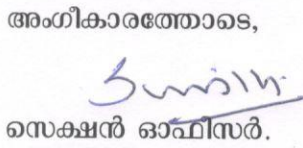 അംഗീകാരത്തോടെ,
സെക്ഷൻ ഓഫീസർ.